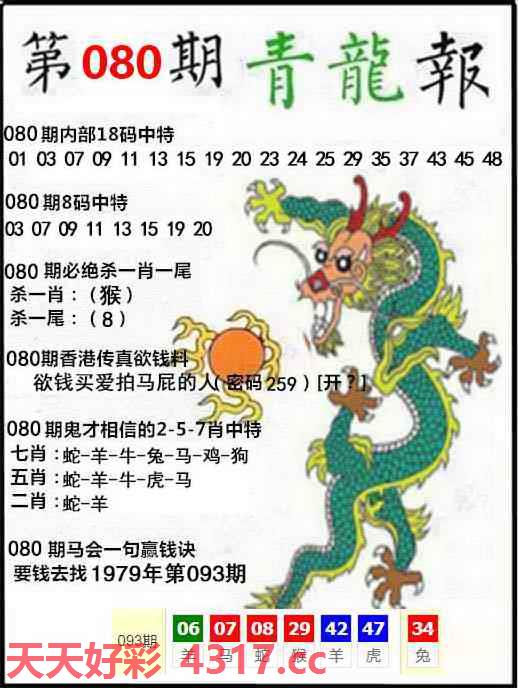 第080期 青龍報
080期内部18码中特
01 03 07 09 11 13 15 19 20 23 24 25 29 35 37 43 45 48
080期8码中特
03 07 09 11 13 15 19 20
080期必绝杀一肖一尾
杀一肖：（猴）
杀一尾：（8）
080期香港传真欲钱料
欲钱买爱拍马屁的人(密码259)[开?]
080期鬼才相信的2-5-7肖中特
七肖：蛇-羊-牛-兔-马-鸡-狗
五肖：蛇-羊-牛-虎-马
二肖：蛇-羊
080期马会一句赢钱诀
要钱去找1979年第093期
093期 06 07 08 29 42 47 34
羊 马 蛇 猴 羊 虎 兔
天天好彩 4317.cc